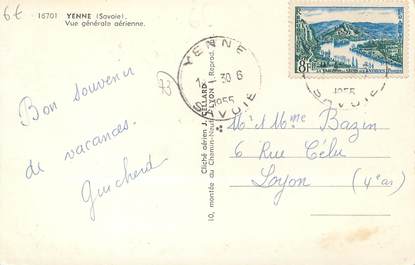 6€
16701 YENNE (Savoie).
Vue générale aérienne.
73
Bon souvenir
de vacances.
Guicherd
Cliché aérien J. CELLARD
10, montée du Chemin-Neuf, LYON - Reprod.
YENNE
30 6
1955
SAVOIE
8F
1955
SAVOIE
Mr Mme Bazin
6 Rue Célu
Lyon (4e ar)